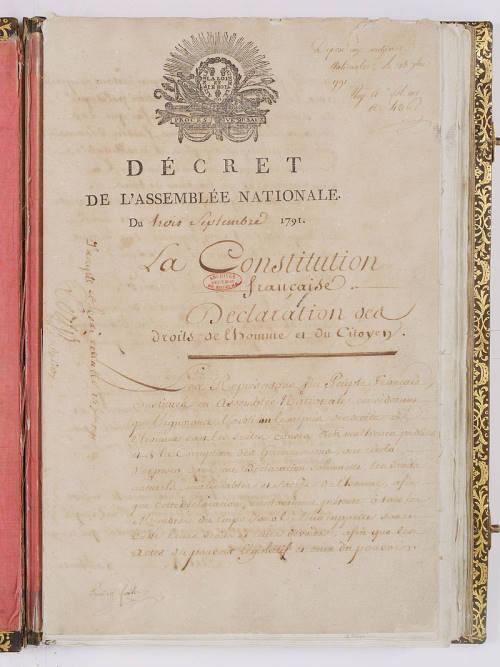 LA LOI ET LE ROI
PROCÈS VERBAUX
DÉCRET
DE L'ASSEMBLÉE NATIONALE.
Du trois Septembre 1791.
La Constitution
française
Déclaration des
droits de l'homme et du Citoyen.
Les Représentans du Peuple français
constitués en Assemblée Nationale, considérant
que l'ignorance, l'oubli ou le mépris des droits de
l'homme sont les seules causes des malheurs publics
et de la Corruption des Gouvernemens, ont résolu
d'exposer dans une Déclaration solennelle, les droits
naturels, inaliénables et sacrés de l'homme, afin
que cette déclaration, constamment présente à tous les
Membres du corps social, leur rappelle sans
cesse leurs droits et leurs devoirs; afin que les
actes du pouvoir législatif et ceux du pouvoir